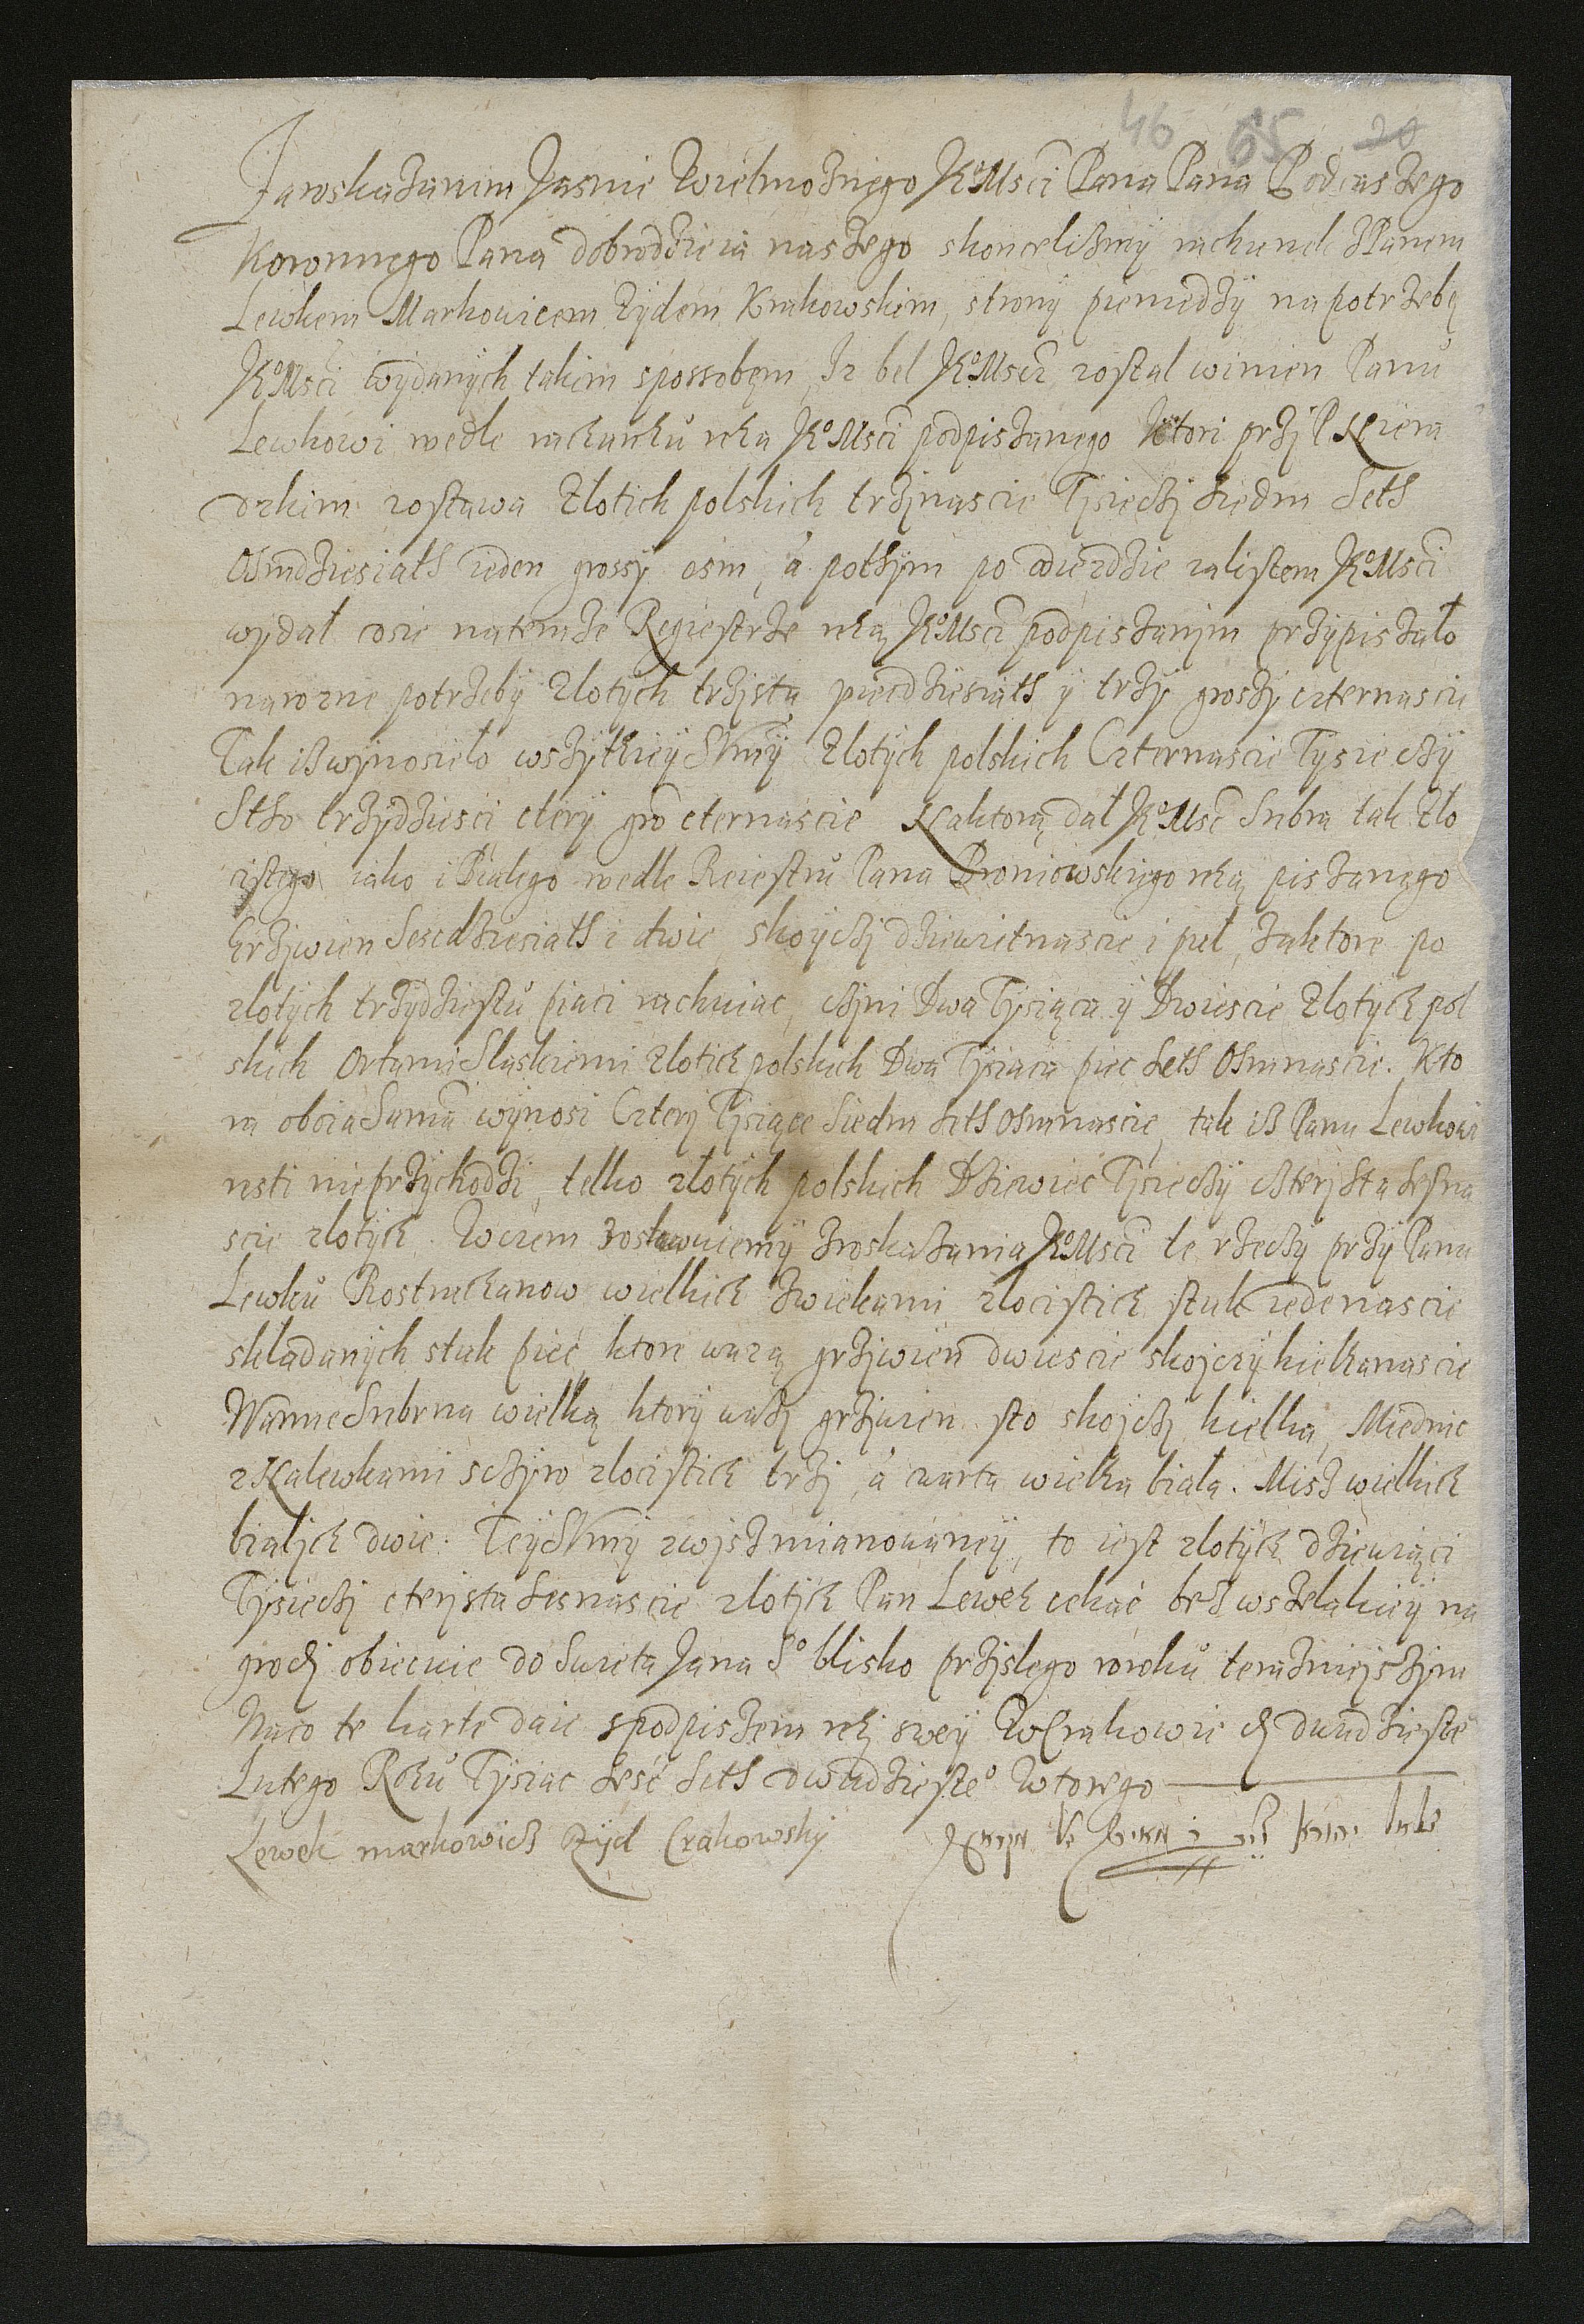 46 65 20
Za roskazanim Jasnie Wielmoznego JKoMsci Pana Pana Podcaszego
Koronnego Pana dobrodzieia naszego skoncelizmÿ rachunek z Panem
Lewkem Markowicem Zÿdem Krakowskim, stronÿ pieniedzÿ na potrzebę
JKoMsci wÿdanÿch takim spossobęm, Iz bel JKoMsci zostal winien Panu
Lewkowi wedle rachunku ręka JKoMsci podpiszanego ktori przÿ P
zostawa Zlotich polskich trzÿnascie Tÿsieczÿ siedm Seth
Osmdziesiath ieden grossÿ osm, a pothÿm po za listem JKoMsci
wÿdał cosie na temze Regiestrze ręką JKoMsci podpiszanÿm przÿpiszało
na rozne potrzebÿ Zlotÿch trzÿsta piecdziesiath ÿ trzÿ groszÿ czternascie
Tak isz wÿnosieło wszÿtkieÿ Smÿ Zlotÿch polskich Czternascie Tÿsieczÿ
Stho trzÿdziesci cterÿ gro cternascie Na ktorą dał JKoMsc Srebra tak Zło
cistego iako i Bialego wedle Reiestru Pana Broniowskiego ręką piszanego
Grzÿwien Sescdziesiath i dwie, skoÿczÿ dziewietnascie i puł, za ktore po
zlotÿch trzÿdziestu piaci rachuiac, czÿni Dwa Tÿsiąca ÿ Dwiescie Zlotÿch pol
skich Ortami Slaskiemi Zlotich polskich Dwa Tÿsiaca piec Seth Osmnascie. Kto
ra obcia Suma wÿnosi Czterÿ Tÿsiące Siedm Seth Osmnascie, tak isz Panu Lewkowi
resti nie przÿchodzi, telko złotÿch polskich Dziewiec Tÿsieczÿ czterÿsta sesna
scie zlotÿch. W czem zostawuiemÿ z roskazania JKoMsci te rzeczÿ przÿ Panu
Lewku Rostruchanow wielkich z wiekami zlocistich stuk iedenascie
skladanÿch stuk pieć ktore wazą grzÿwien dwiescie skojczÿ kielkanascie
Wanne Srebrna wielką ktorÿ wazÿ grzÿwien sto skojczÿ kielka, Miednic
z Nalewkami sczÿro zlocistich trzÿ, a czarta wielka biała. Misz wielkich
bialÿch dwie. Teÿ Smÿ zwÿsz mianowaneÿ, to iest zlotÿch dziewiąci
Tÿsieczÿ cterÿsta sesnascie zlotÿch Pan Lewek cekać bez wszelakieÿ na
grodÿ obiecuie do Swieta Jana So blisko przÿslego w roku terazniejszÿm
Na co te karte daie s podpiszem rekÿ sweÿ W Crakowie dwudzieste
Lutego Roku Tÿsiac sesć Seth dwudziesteo Wtorego
Lewek markowicz Zÿd Crakowskÿ